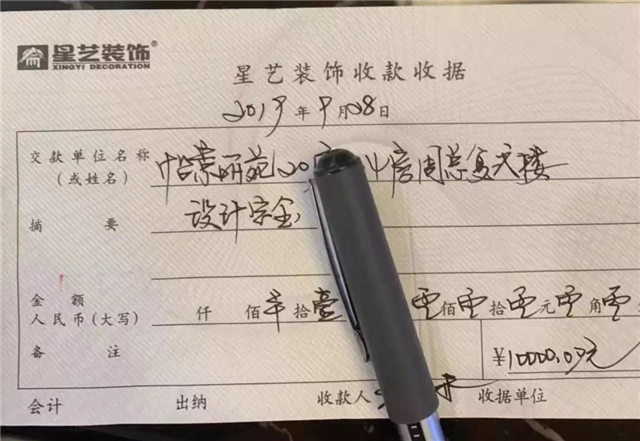 星艺装饰®
XINGYI DECORATION
星艺装饰收款收据
2019年9月28日
交款单位名称
(或姓名)
怡景明苑20 房周总复天楼
摘 要
设计定金
金 额
人民币(大写) 仟 佰 拾壹 零佰零拾零元零角零
备 注
¥10000.00元
会计 出纳 收款人 收据单位